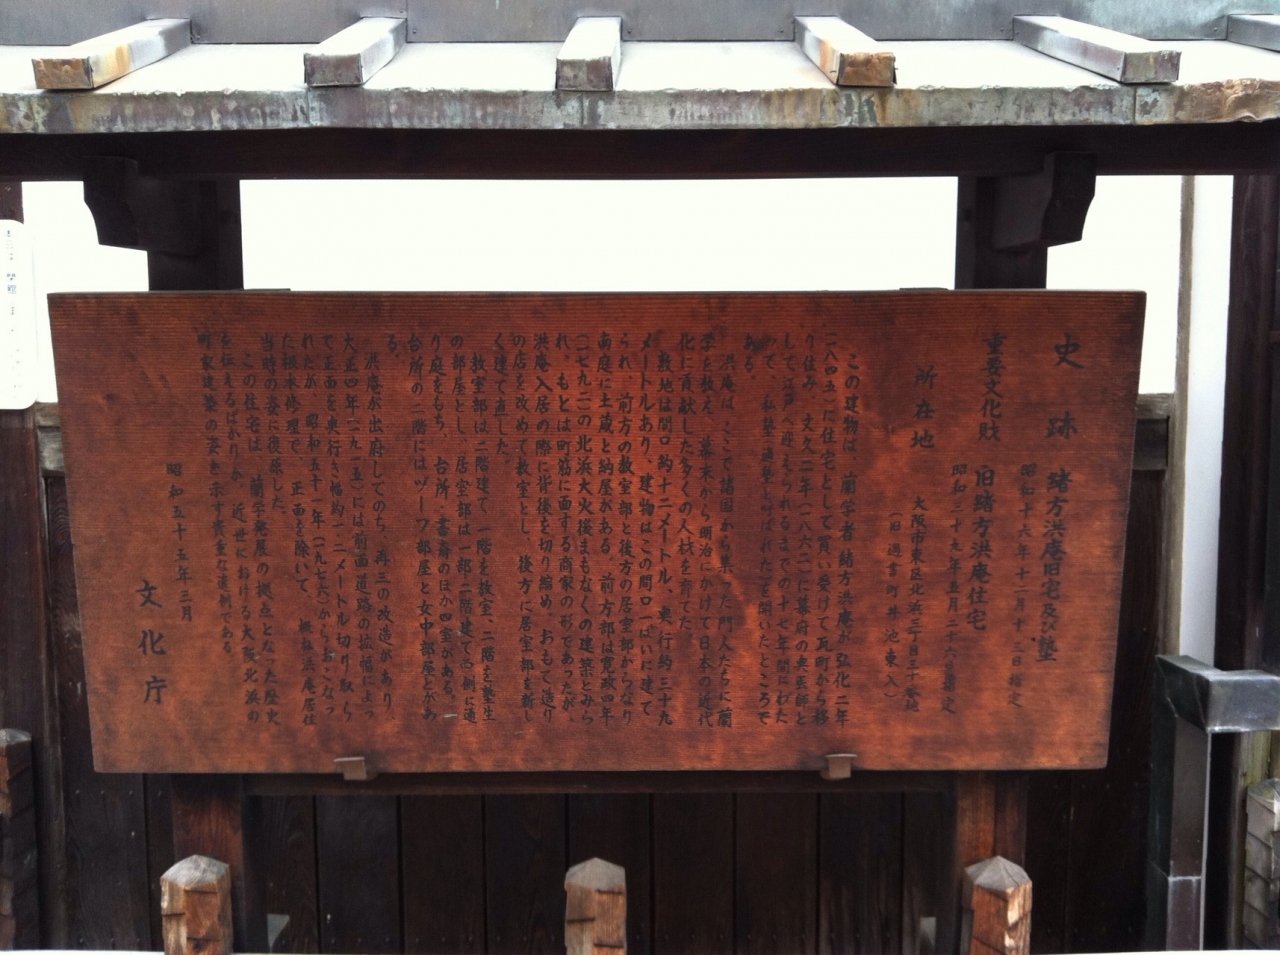 史跡 緒方洪庵旧宅及び塾
昭和十六年十二月十三日指定
重要文化財 旧緒方洪庵住宅
昭和三十九年五月二十六日指定
所在地 大阪市東区北浜三丁目三十番地
（旧過書町井池東入）
この建物は、蘭学者緒方洪庵が弘化二年
（一八四五）に住宅として買い受けて瓦町から移
り住み、文久二年（一八六二）に幕府の奥医師と
して江戸へ迎えられるまでの十七年間にわた
って、私塾「適塾」と呼ばれた を開いたところで
ある。
洪庵は、ここで諸国から来た門人たちに蘭
学を教え、幕末から明治にかけて日本の近代
化に貢献した多くの人材を育てた。
敷地は間口約十二メートル、奥行約三十九
メートルあり、建物はこの間口一ぱいに建て
られ、前方の教室部と後方の居室部からなり
南庭に土蔵と納屋がある。前方部は寛政四年
（一七九二）の北浜大火後まもなくの建築とみら
れ、もとは町筋に面する商家の形であったが、
洪庵入居の際に背後を切り縮め、おもて造り
の店を改めて教室とし、後方に居室部を新し
く建て直した。
教室部は二階建で一階を教室、二階を塾生
の部屋とし、居室部は一部二階建で西側に通
り庭をもち、台所・書斎のほか四室がある。
台所の二階にはヅーフ部屋と女中部屋とがあ
る。
洪庵が出府してのち、再三の改造があり、
大正四年（一九一五）には前面道路の拡幅によっ
て正面を奥行き幅約一・二メートル切り取ら
れたが、昭和五十一年（一九七六）からおこなっ
た根本修理で、正面を除いて、概ね洪庵居住
当時の姿に復原した。
この住宅は、蘭学発展の拠点となった歴史
を伝えるばかりか、近世における大阪北浜の
町家建築の姿を示す貴重な遺例である。
昭和五十五年三月
文化庁